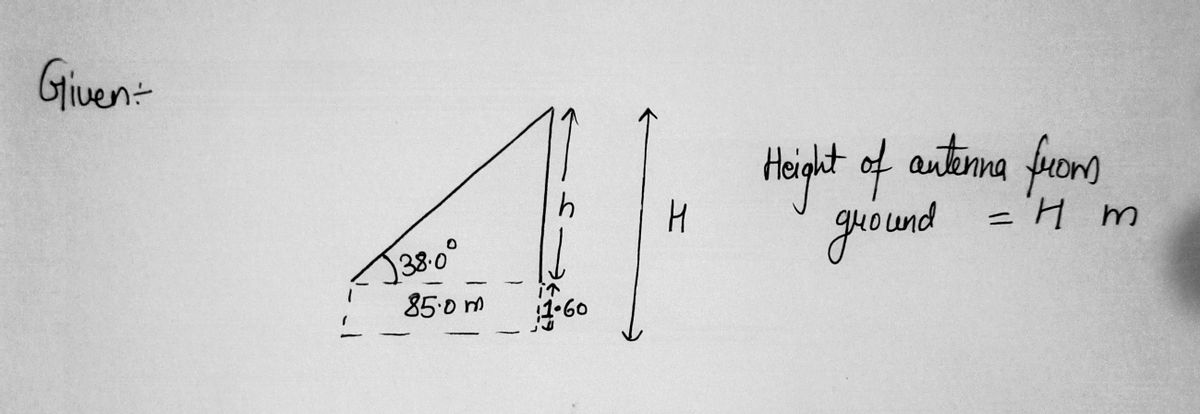 Given÷
h
H
Height of antenna from
ground = H m
38.0°
85.0 m
1.60